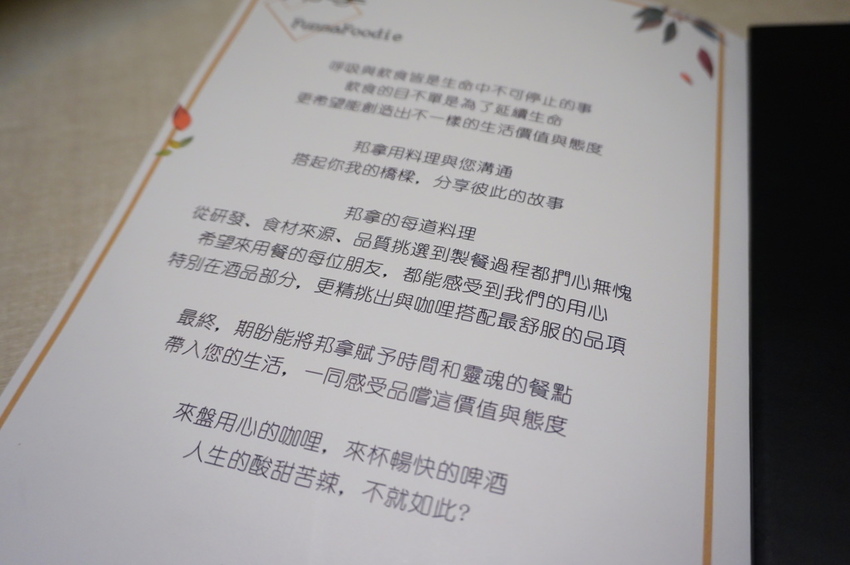 FunnaFoodie
呼吸與飲食皆是生命中不可停止的事
飲食的目不單是為了延續生命
更希望能創造出不一樣的生活價值與態度
邦拿用料理與您溝通
搭起你我的橋樑，分享彼此的故事
邦拿的每道料理
從研發、食材來源、品質挑選到製餐過程都捫心無愧
希望來用餐的每位朋友，都能感受到我們的用心
特別在酒品部分，更精挑出與咖哩搭配最舒服的品項
最終，期盼能將邦拿賦予時間和靈魂的餐點
帶入您的生活，一同感受品嚐這價值與態度
來盤用心的咖哩，來杯暢快的啤酒
人生的酸甜苦辣，不就如此?